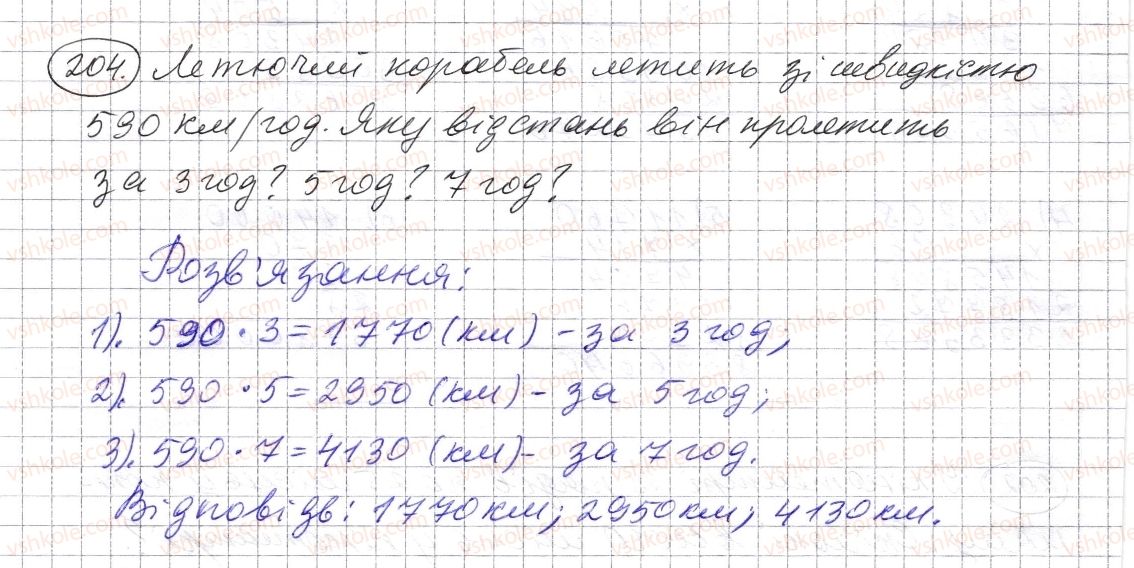 204. Летючий корабель летить зі швидкістю
590 км/год. Яку відстань він пролетить
за 3 год? 5 год? 7 год?
Розв'язання:
1). 590 · 3 = 1770 (км) - за 3 год;
2). 590 · 5 = 2950 (км) - за 5 год;
3). 590 · 7 = 4130 (км) - за 7 год.
Відповідь: 1770 км; 2950 км; 4130 км.
vshkole.com